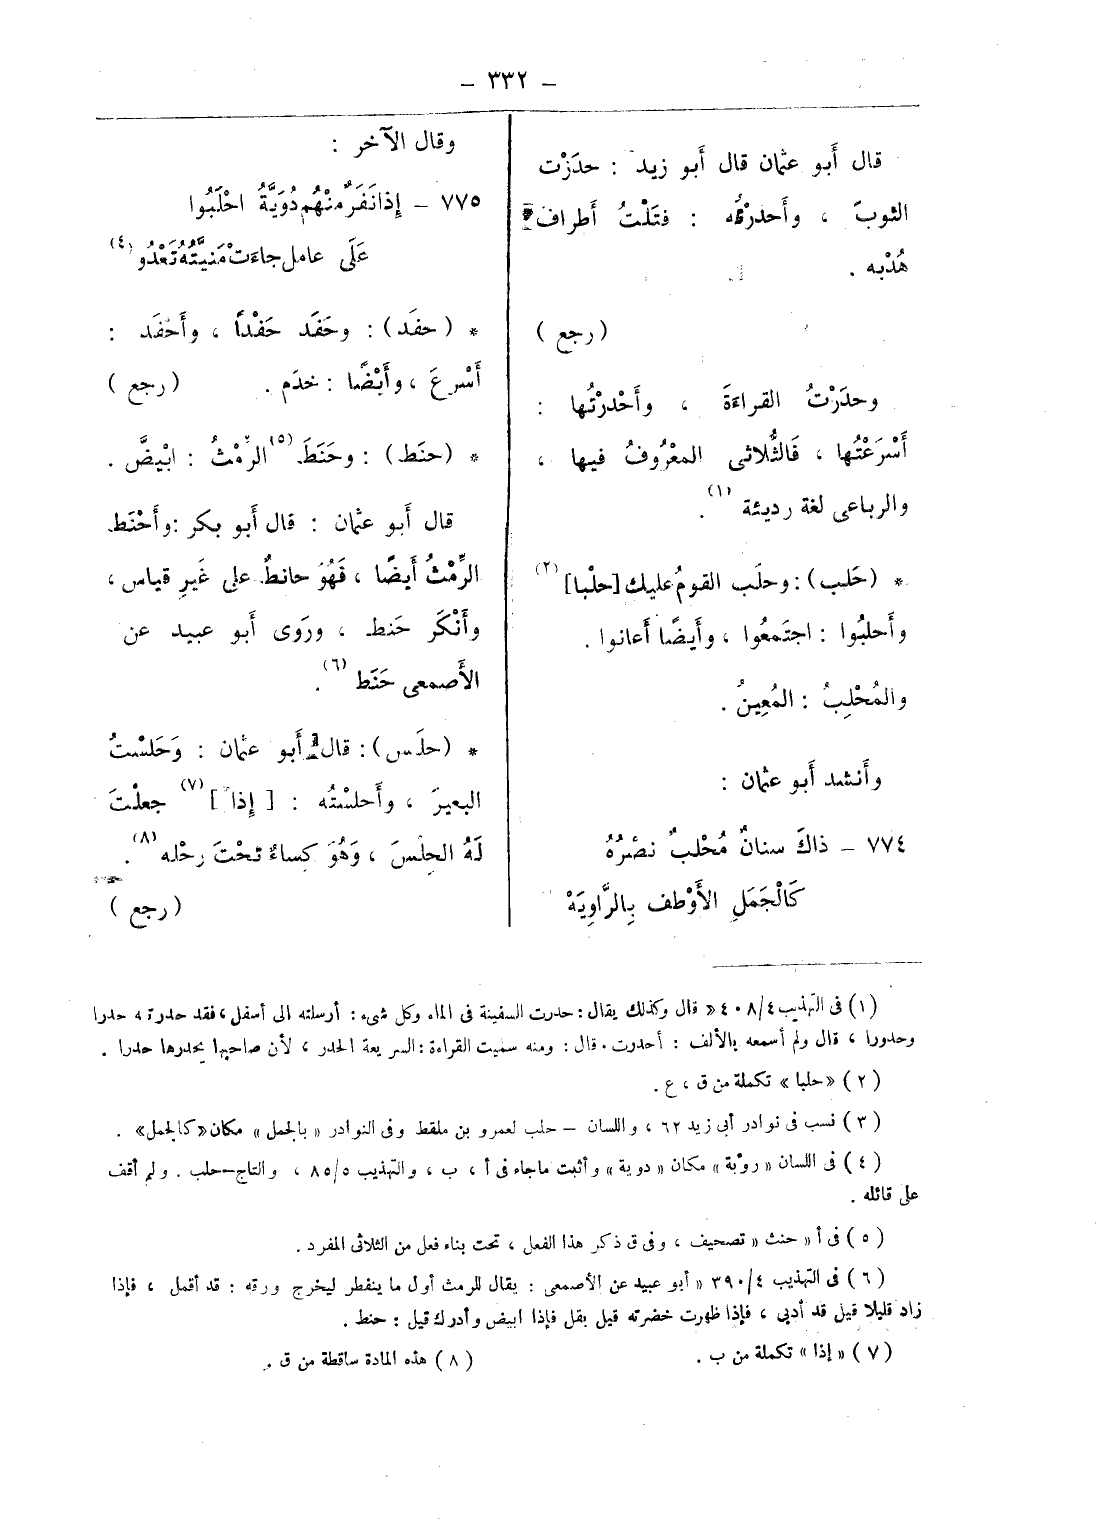 – ٣٣٢ –
قال أَبو عثمان قال أَبو زيد : حدَرْت
الثوبَ ، وأَحدرْته : فتَلْتُ أَطراف
هُدْبه .
(رجع)
وحدَرْتُ القراءةَ ، وأَحْدرْتُها :
أَسْرَعْتُها ، فَالثُّلاثى المعْرُوفُ فيها ،
والرباعى لغة رديئة (١) .
* (حَلب) : وحلَب القومُ عليك [حلْبا] (٢)
وأَحلبُوا : اجتَمعُوا ، وأَيضًا أَعانوا .
والمُحْلِبُ : المُعِينُ .
وأَنشد أَبو عثمان :
٧٧٤ – ذاكَ سنانٌ مُحْلبٌ نصْرُهُ
كَالْجَمَلِ الأَوْطف بِالرَّاوِيَهْ
وقال الآخر :
٧٧٥ – إِذا نَفَرٌ منْهُم دُوَيَّةُ احْلَبُوا
عَلَى عامل جاءَتْ مَنيَّتُهُ تَعْدُو (٤)
* (حفَد) : وحَفَد حَفْداً ، وأَحْفَد :
أَسْرعَ ، وأَيْضًا : خدَم . (رجع)
* (حنَط) : وحَنَطَ (٥) الرِّمْثُ : ابْيضَّ .
قال أَبو عثمان : قال أَبو بكر : وأَحْنَط
الرِّمْثُ أَيضًا ، فَهُوَ حانطٌ على غَيرِ قياس ،
وأَنْكَر حَنط ، ورَوَى أَبو عبيد عن
الأَصمعى حَنَط (٦) .
* (حلَس) : قال أَبو عثمان : وَحَلسْتُ
البعيرَ ، وأَحلسْتُه : [ إِذا ] (٧) جعلْتَ
لَهُ الحِلْسَ ، وَهُوَ كِساءٌ تحْتَ رحْله (٨) .
(رجع)
(١) فى التهذيب ٤٠٨/٤ « قال وكذلك يقال : حدرت السفينة فى الماء وكل شىء : أرسلته الى أسفل ، فقد حدرته حدرا
وحدورا ، قال ولم أسمعه بالألف : أحدرت . قال : ومنه سميت القراءة : السريعة الحدر ، لأن صاحبها يحدرها حدرا .
(٢) « حلبا » تكملة من ق ، ع .
(٣) نسب فى نوادر أبى زيد ٦٢ ، واللسان – حلب لعمرو بن ملقط وفى النوادر « بالجمل » مكان « كالجمل » .
(٤) فى اللسان « رؤبة » مكان « دوية » وأثبت ماجاء فى أ ، ب ، والتهذيب ٨٥/٥ ، والتاج – حلب . ولم أقف
على قائله .
(٥) فى أ « حنث » تصحيف ، وفى ق ذكر هذا الفعل ، تحت بناء فعل من الثلاثى المفرد .
(٦) فى التهذيب ٣٩٠/٤ « أبو عبيد عن الأصمعى : يقال للرمث أول ما ينفطر ليخرج ورقه : قد أقمل ، فإذا
زاد قليلا قيل قد أدبى ، فإذا ظهرت خضرته قيل بقل فإذا ابيض وأدرك قيل : حنط .
(٧) « إذا » تكملة من ب . (٨) هذه المادة ساقطة من ق .